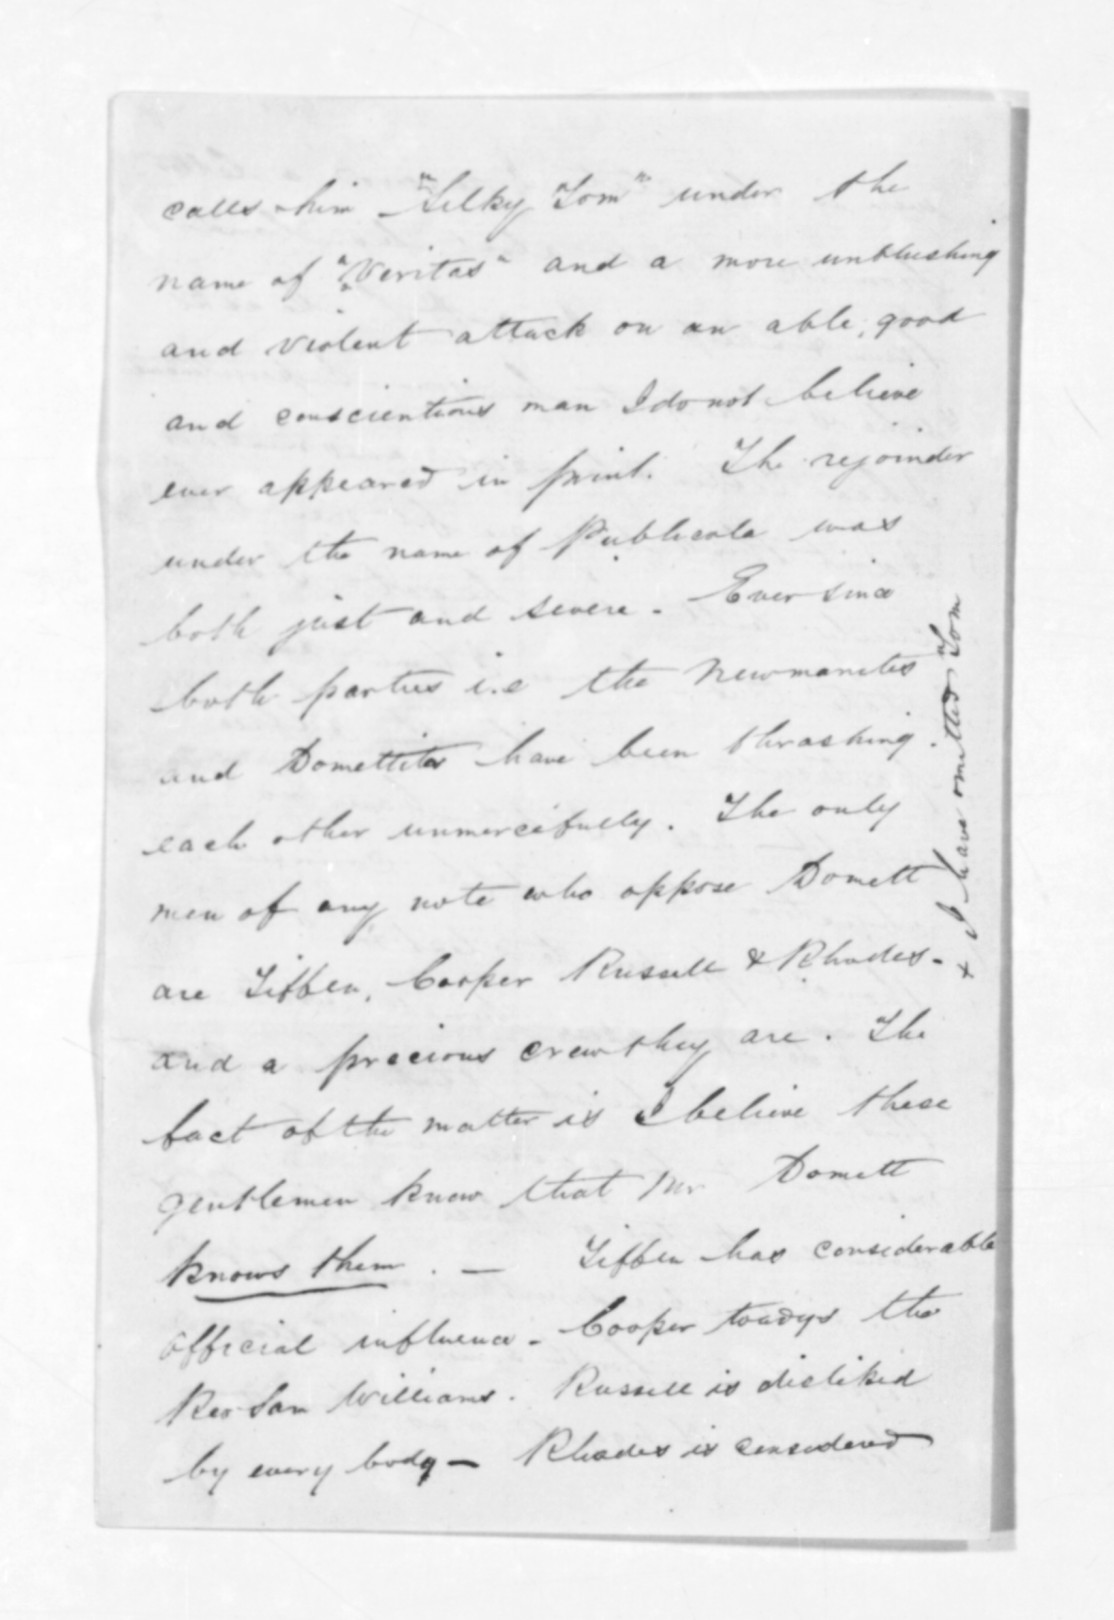 calls him "Silky Tom" under the
name of "Veritas" and a more unblushing
and violent attack on an able, good
and conscientious man I do not believe
ever appeared in print. The rejoinder
under the name of Publicola was
both just and severe. Ever since
both parties i.e the Newmanites
and Domettites have been thrashing
each other unmercifully. The only
men of any note who oppose Domett
are Tiffen, Cooper Russell & Rhodes -
and a precious crew they are. The
fact of the matter is I believe these
gentlemen know that Mr Domett
knows them. — Tiffen has considerable
official influence - Cooper toadys the
Rev Sam Williams. Russell is disliked
by every body — Rhodes is considered
+ I have omitted "Tom